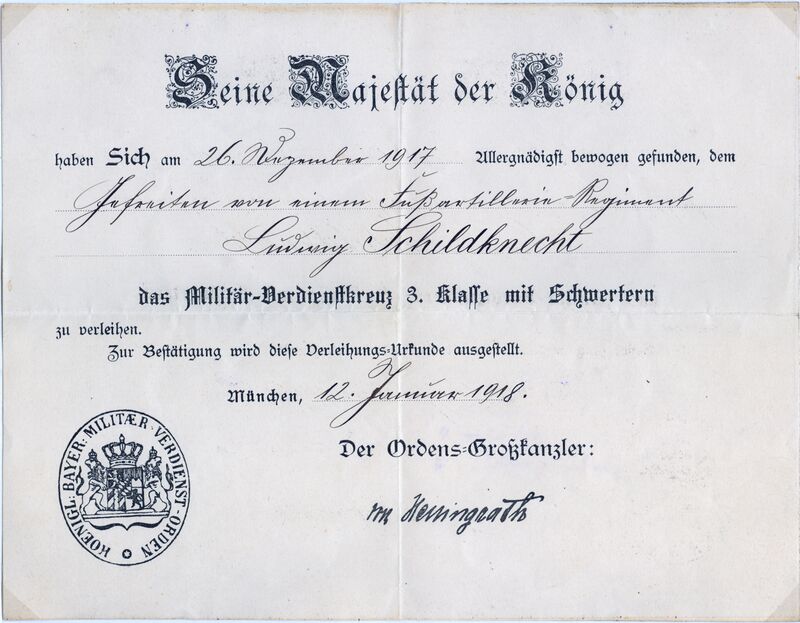 Seine Majestät der König
haben Sich am 26. Dezember 1917 Allergnädigst bewogen gefunden, dem
Gefreiten von einem Fußartillerie-Regiment
Ludwig Schildknecht
das Militär-Verdienstkreuz 3. Klasse mit Schwertern
zu verleihen.
Zur Bestätigung wird diese Verleihungs-Urkunde ausgestellt.
München, 12. Januar 1918.
Der Ordens-Großkanzler:
KOENIGL: BAYER: MILITÆR-VERDIENST-ORDEN